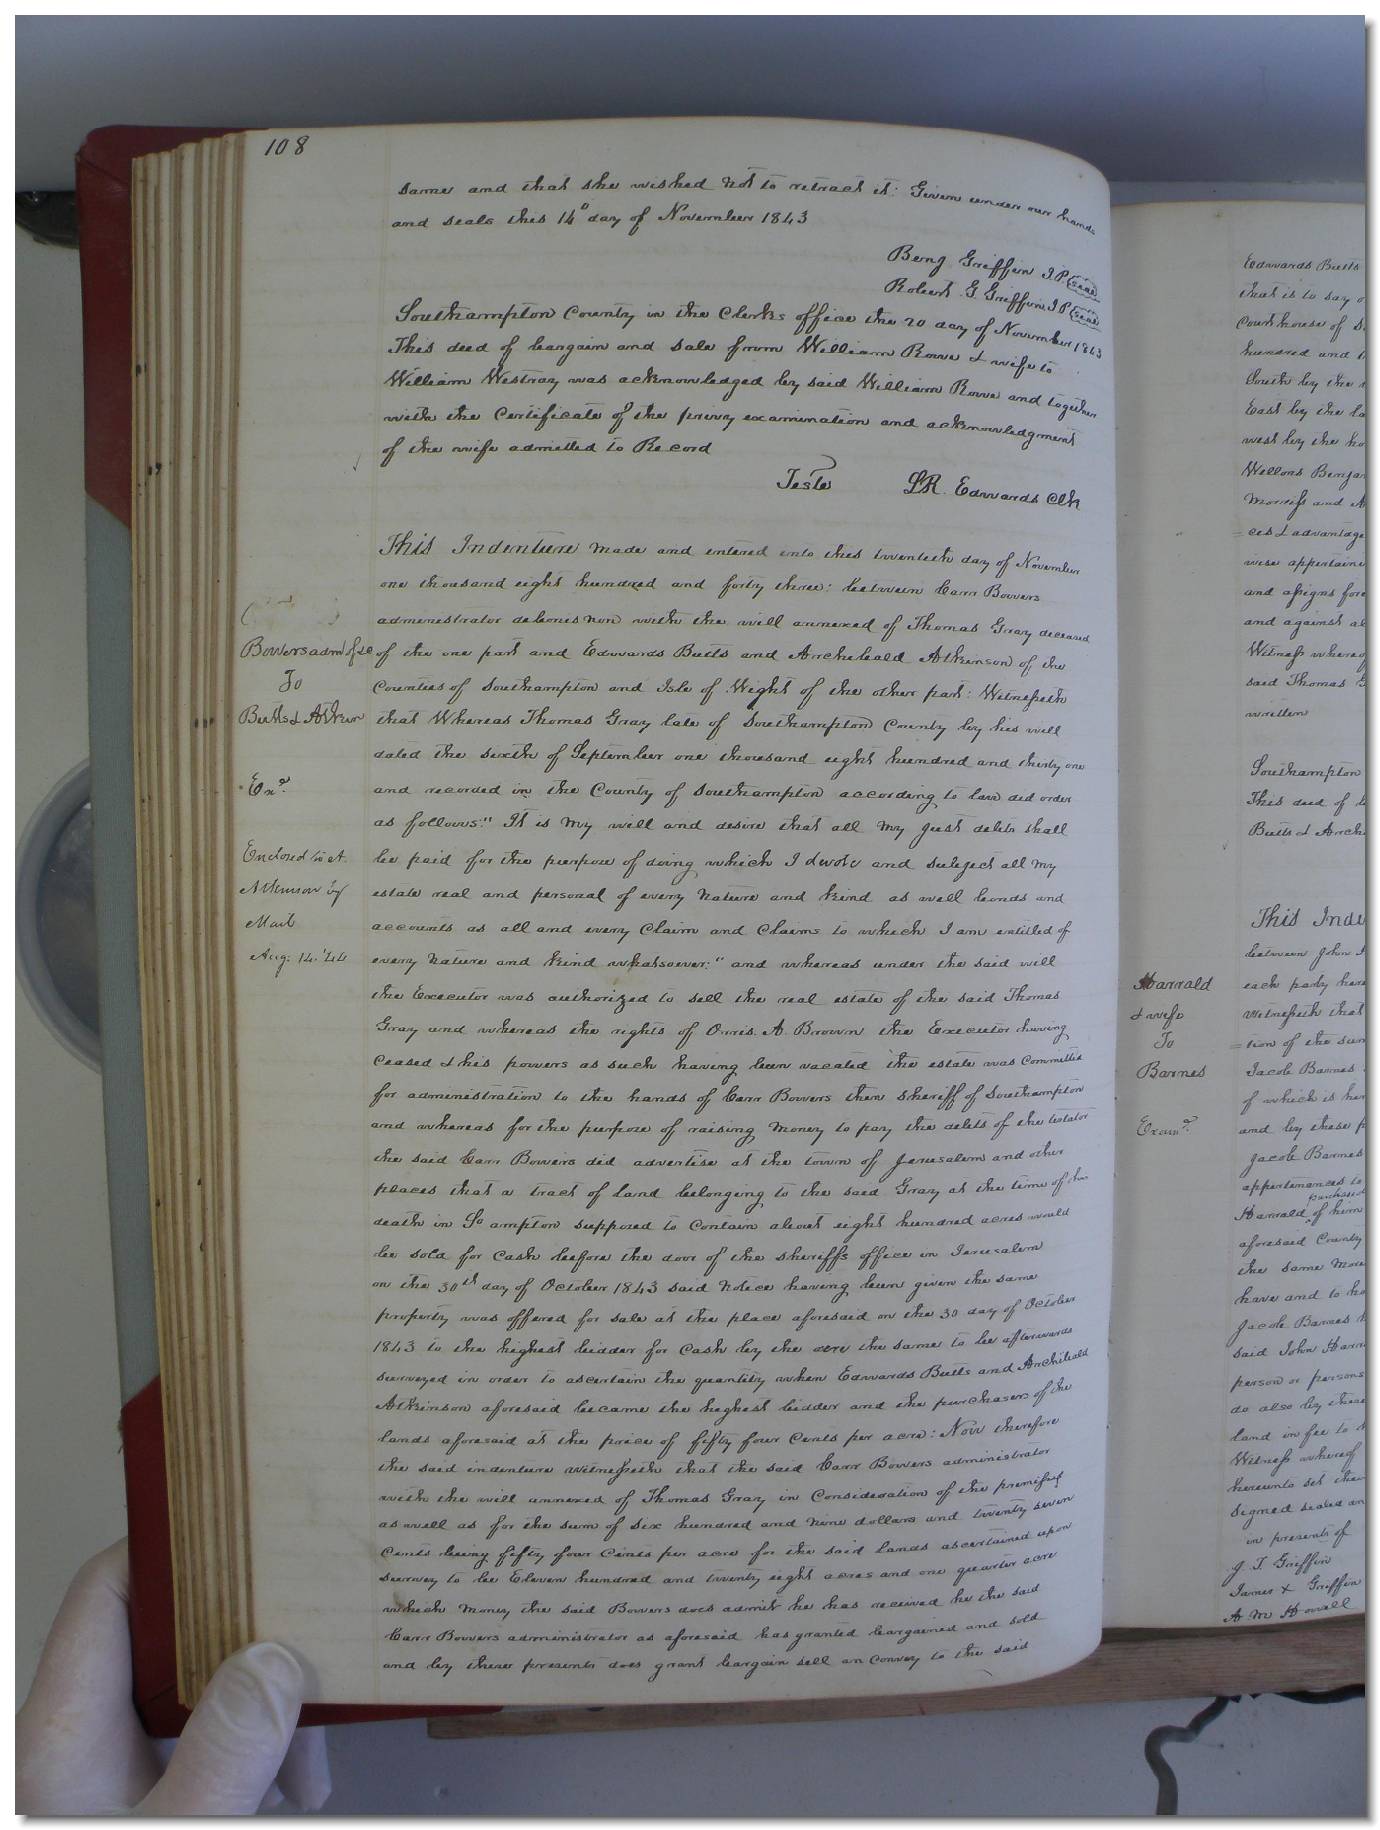 108
same and that she wished not to retract it: Given under our hands
and seals this 14th day of November 1843
Benj Griffin J.P. seal
Robert G. Griffin J P seal
Southampton County in the Clerks office the 20 day of November 1843
This deed of bargain and sale from William Rowe & wife to
William Westray was acknowledged by said William Rowe and together
with the Certificate of the privy examination and acknowledgment
of the wife admitted to Record
Teste LR. Edwards Clk
This Indenture made and entered into this twentieth day of November
one thousand eight hundred and forty three: between Carr Bowers
administrator debonis non with the will annexed of Thomas Gray deceased
of the one part and Edwards Butts and Archibald Atkinson of the
Counties of Southampton and Isle of Wight of the other part: Witnesseth
that Whereas Thomas Gray late of Southampton County by his will
dated the sixth of September one thousand eight hundred and thirty one
and recorded in the County of Southampton according to law did order
as follows:" It is my will and desire that all my just debts shall
be paid for the purpose of doing which I devote and subject all my
estate real and personal of every nature and kind as well bonds and
accounts as all and every Claim and Claims to which I am entitled of
every nature and kind whatsoever:" and whereas under the said will
the Executor was authorized to sell the real estate of the said Thomas
Gray and whereas the rights of Orris. A. Brown the Executor having
ceased & his powers as such having been vacated the estate was committed
for administration to the hands of Carr Bowers then sheriff of Southampton
and whereas for the purpose of raising money to pay the debts of the testator
the said Carr Bowers did advertise at the town of Jerusalem and other
places that a tract of land belonging to the said Gray at the time of his
death in So ampton supposed to contain about eight hundred acres would
be sold for cash before the door of the sheriffs office in Jerusalem
on the 30th day of October 1843 said notice having been given the same
property was offered for sale at the place aforesaid on the 30 day of October
1843 to the highest bidder for cash by the acre the same to be afterwards
surveyed in order to ascertain the quantity when Edwards Butts and Archibald
Atkinson aforesaid became the highest bidder and the purchasers of the
lands aforesaid at the price of fifty four cents per acre: Now therefore
the said indenture witnesseth that the said Carr Bowers administrator
with the will annexed of Thomas Gray in Consideration of the premises
as well as for the sum of six hundred and nine dollars and twenty seven
cents being fifty four cents per acre for the said lands ascertained upon
survey to be Eleven hundred and twenty eight acres and one quarter acre
which money the said Bowers does admit he has received he the said
Carr Bowers administrator as aforesaid has granted bargained and sold
and by these presents does grant bargain sell an convey to the said
Bowers adm
To
Butts &
Exd
Enclosed to A.
Atkinson by
Mail
Aug: 14. '44
Edwards Butts
that is to say
Courthouse of
hundred and
South by the
East by the
west by the
Wellons
Morriss and
=ces & advantage
wise
and assigns
and against
Witness
said Thomas
written
Southampton
This deed of
Butts &
This
between John
each party
witnesseth that
=tion of the
Jacob Barnes
of which is
and by these
Jacob Barnes
appertenances to
Harrald of him
purchased
aforesaid County
the same
have and to
Jacob Barnes
said John
person or persons
do also by these
land in fee to
Witness whereof
hereunto set
signed sealed
in presents of
J. T. Griffin
James X Griffin
A M Howell
Harrald
& wife
To
Barnes
Examd